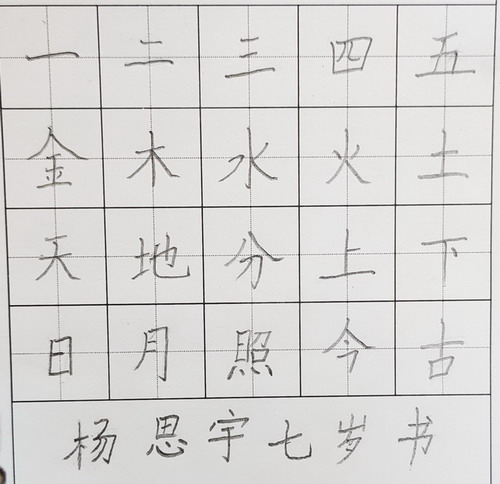 一二三四五
金木水火土
天地分上下
日月照今古
杨思宇七岁书